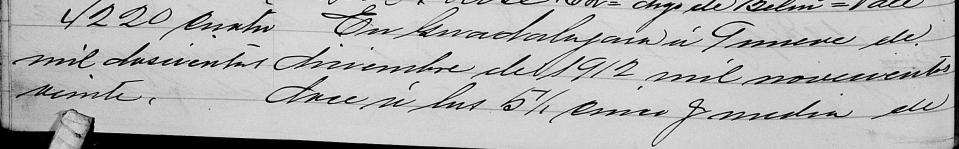 digo de Belén = Vale
4220 cuatro En Guadalajara á 9 nueve de
mil doscientos diciembre de 1912 mil novecientos
veinte. doce á las 5½ cinco y media de